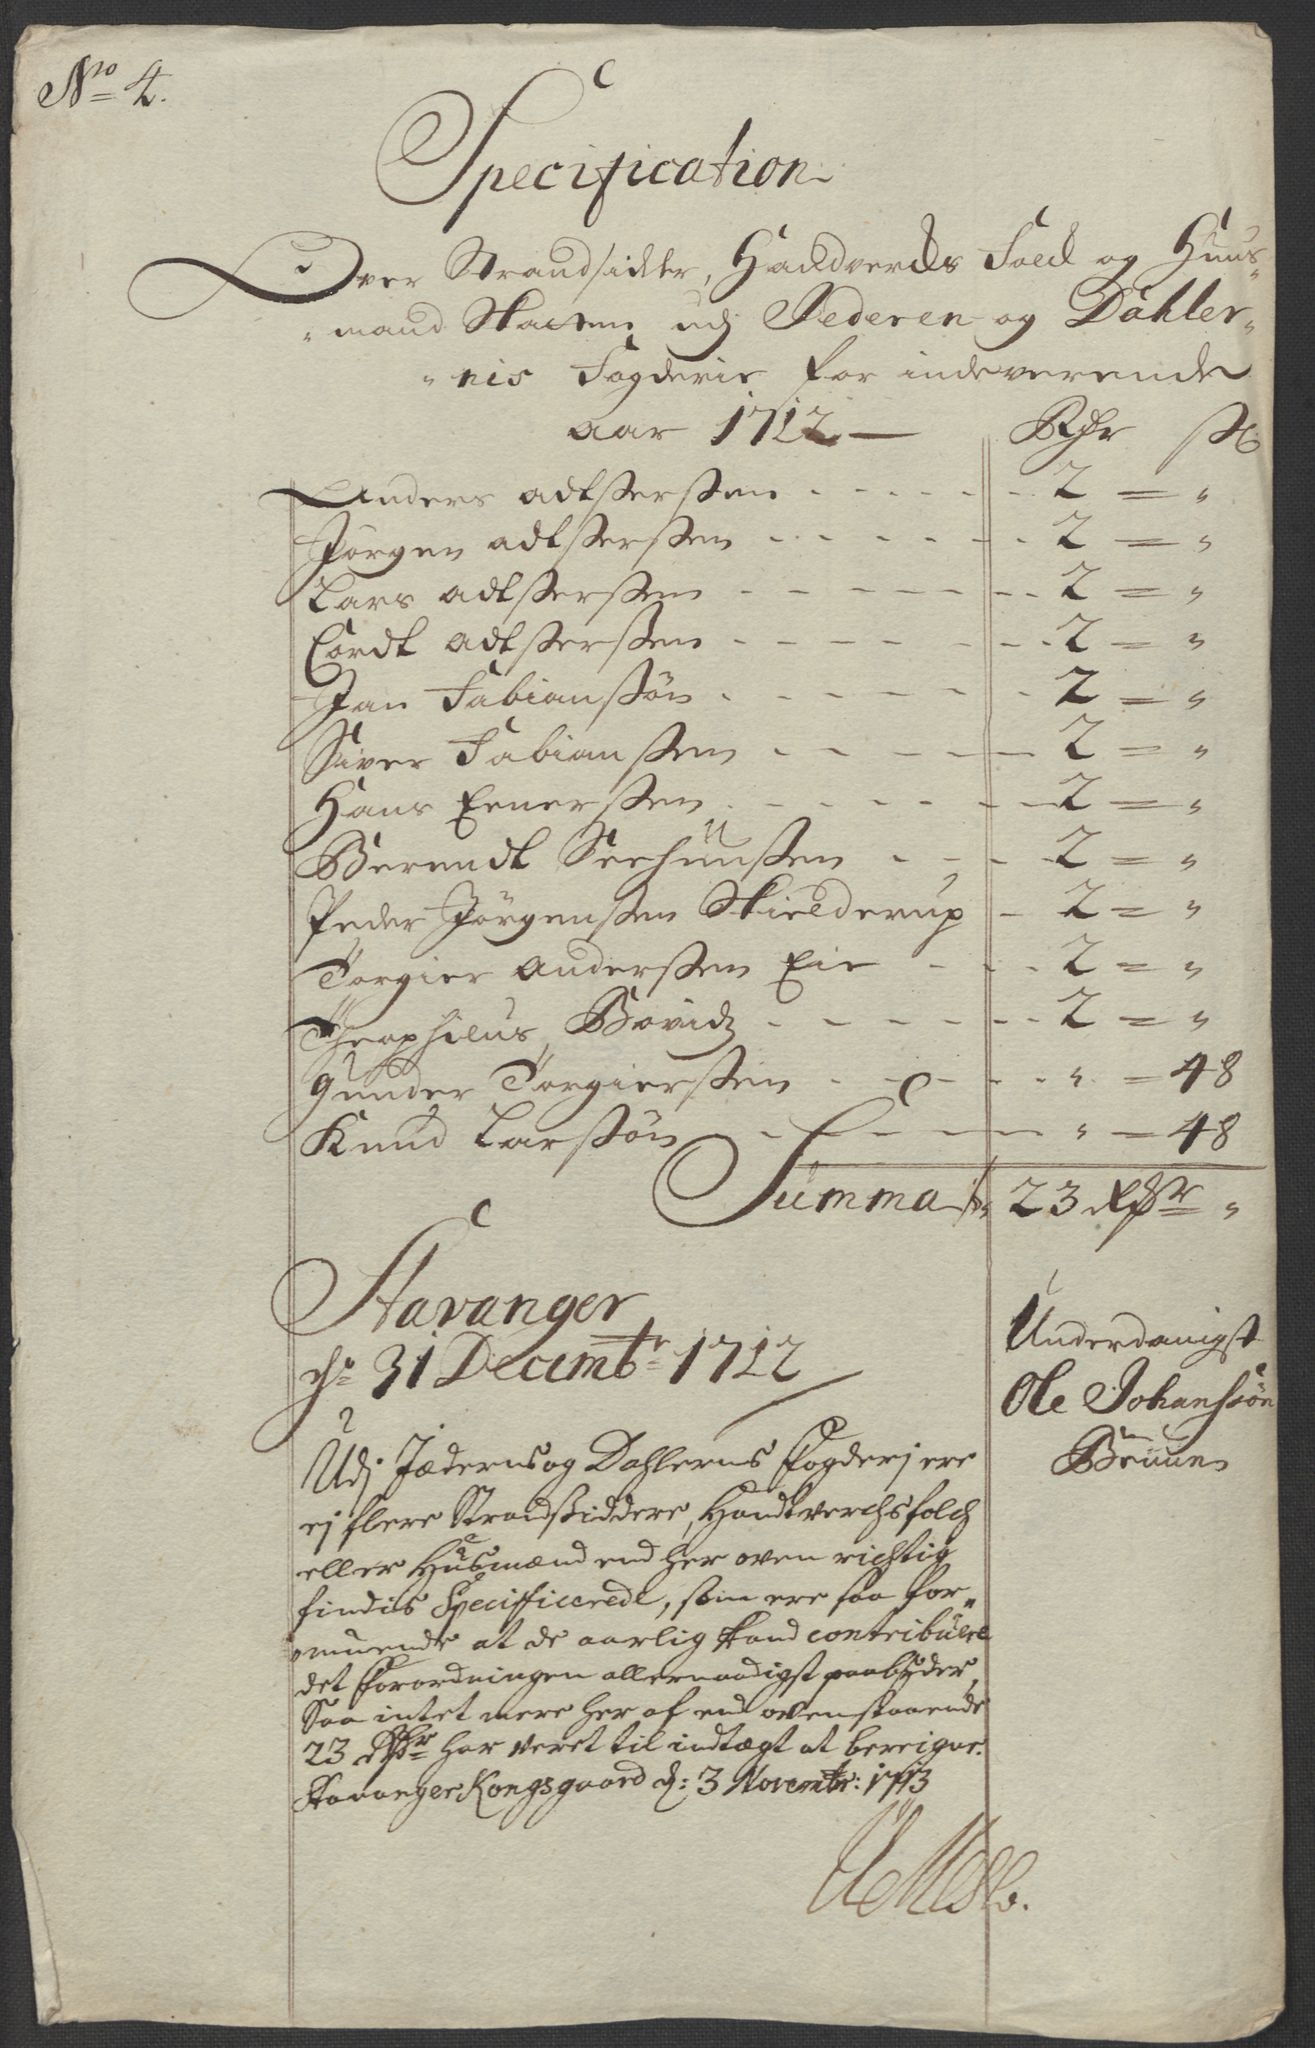 No 4.
Specification
Over Strandsidder, Handverks Folck og Huus-
mand Skatten udj Jederen og Dahler-
nis Fogderie for indeverende
aar 1712 — Rdr ß
Anders adtzersen 2 = "
Jörgen adtzersen 2 = "
Lars adtzersen 2 = "
Cordt adtzersen 2 = "
Jan Fabiansön 2 = "
Siver Fabiansen 2 = "
Hans Evensen 2 = "
Berendt Seehuusen 2 = "
Peder Jörgensen Skielderup 2 = "
Torgier Andersen Eie 2 = "
Theophilus 2 = "
Gunder Torgiersen " = 48
Knud Larsön " = 48
Summa 23 Rdr "
Stavanger
dn 31 Decembr 1712
Underdanigst
Ole Johansön
Udj Jæderns og Dahlerns Fogderj ere
ej flere Strandsiddere, Handtverchsfolch
eller Husmænd end her oven richtig
findis Specificerede, som ere saa for-
muende at de aarlig kand contribuere
det Forordningen allernaadigst paabyder,
Saa intet mere her af end ovenstaaende
23 Rdr har veret til indtægt at bereigne.
Stavanger Kongsgaard d: 3 Novembr: 1713